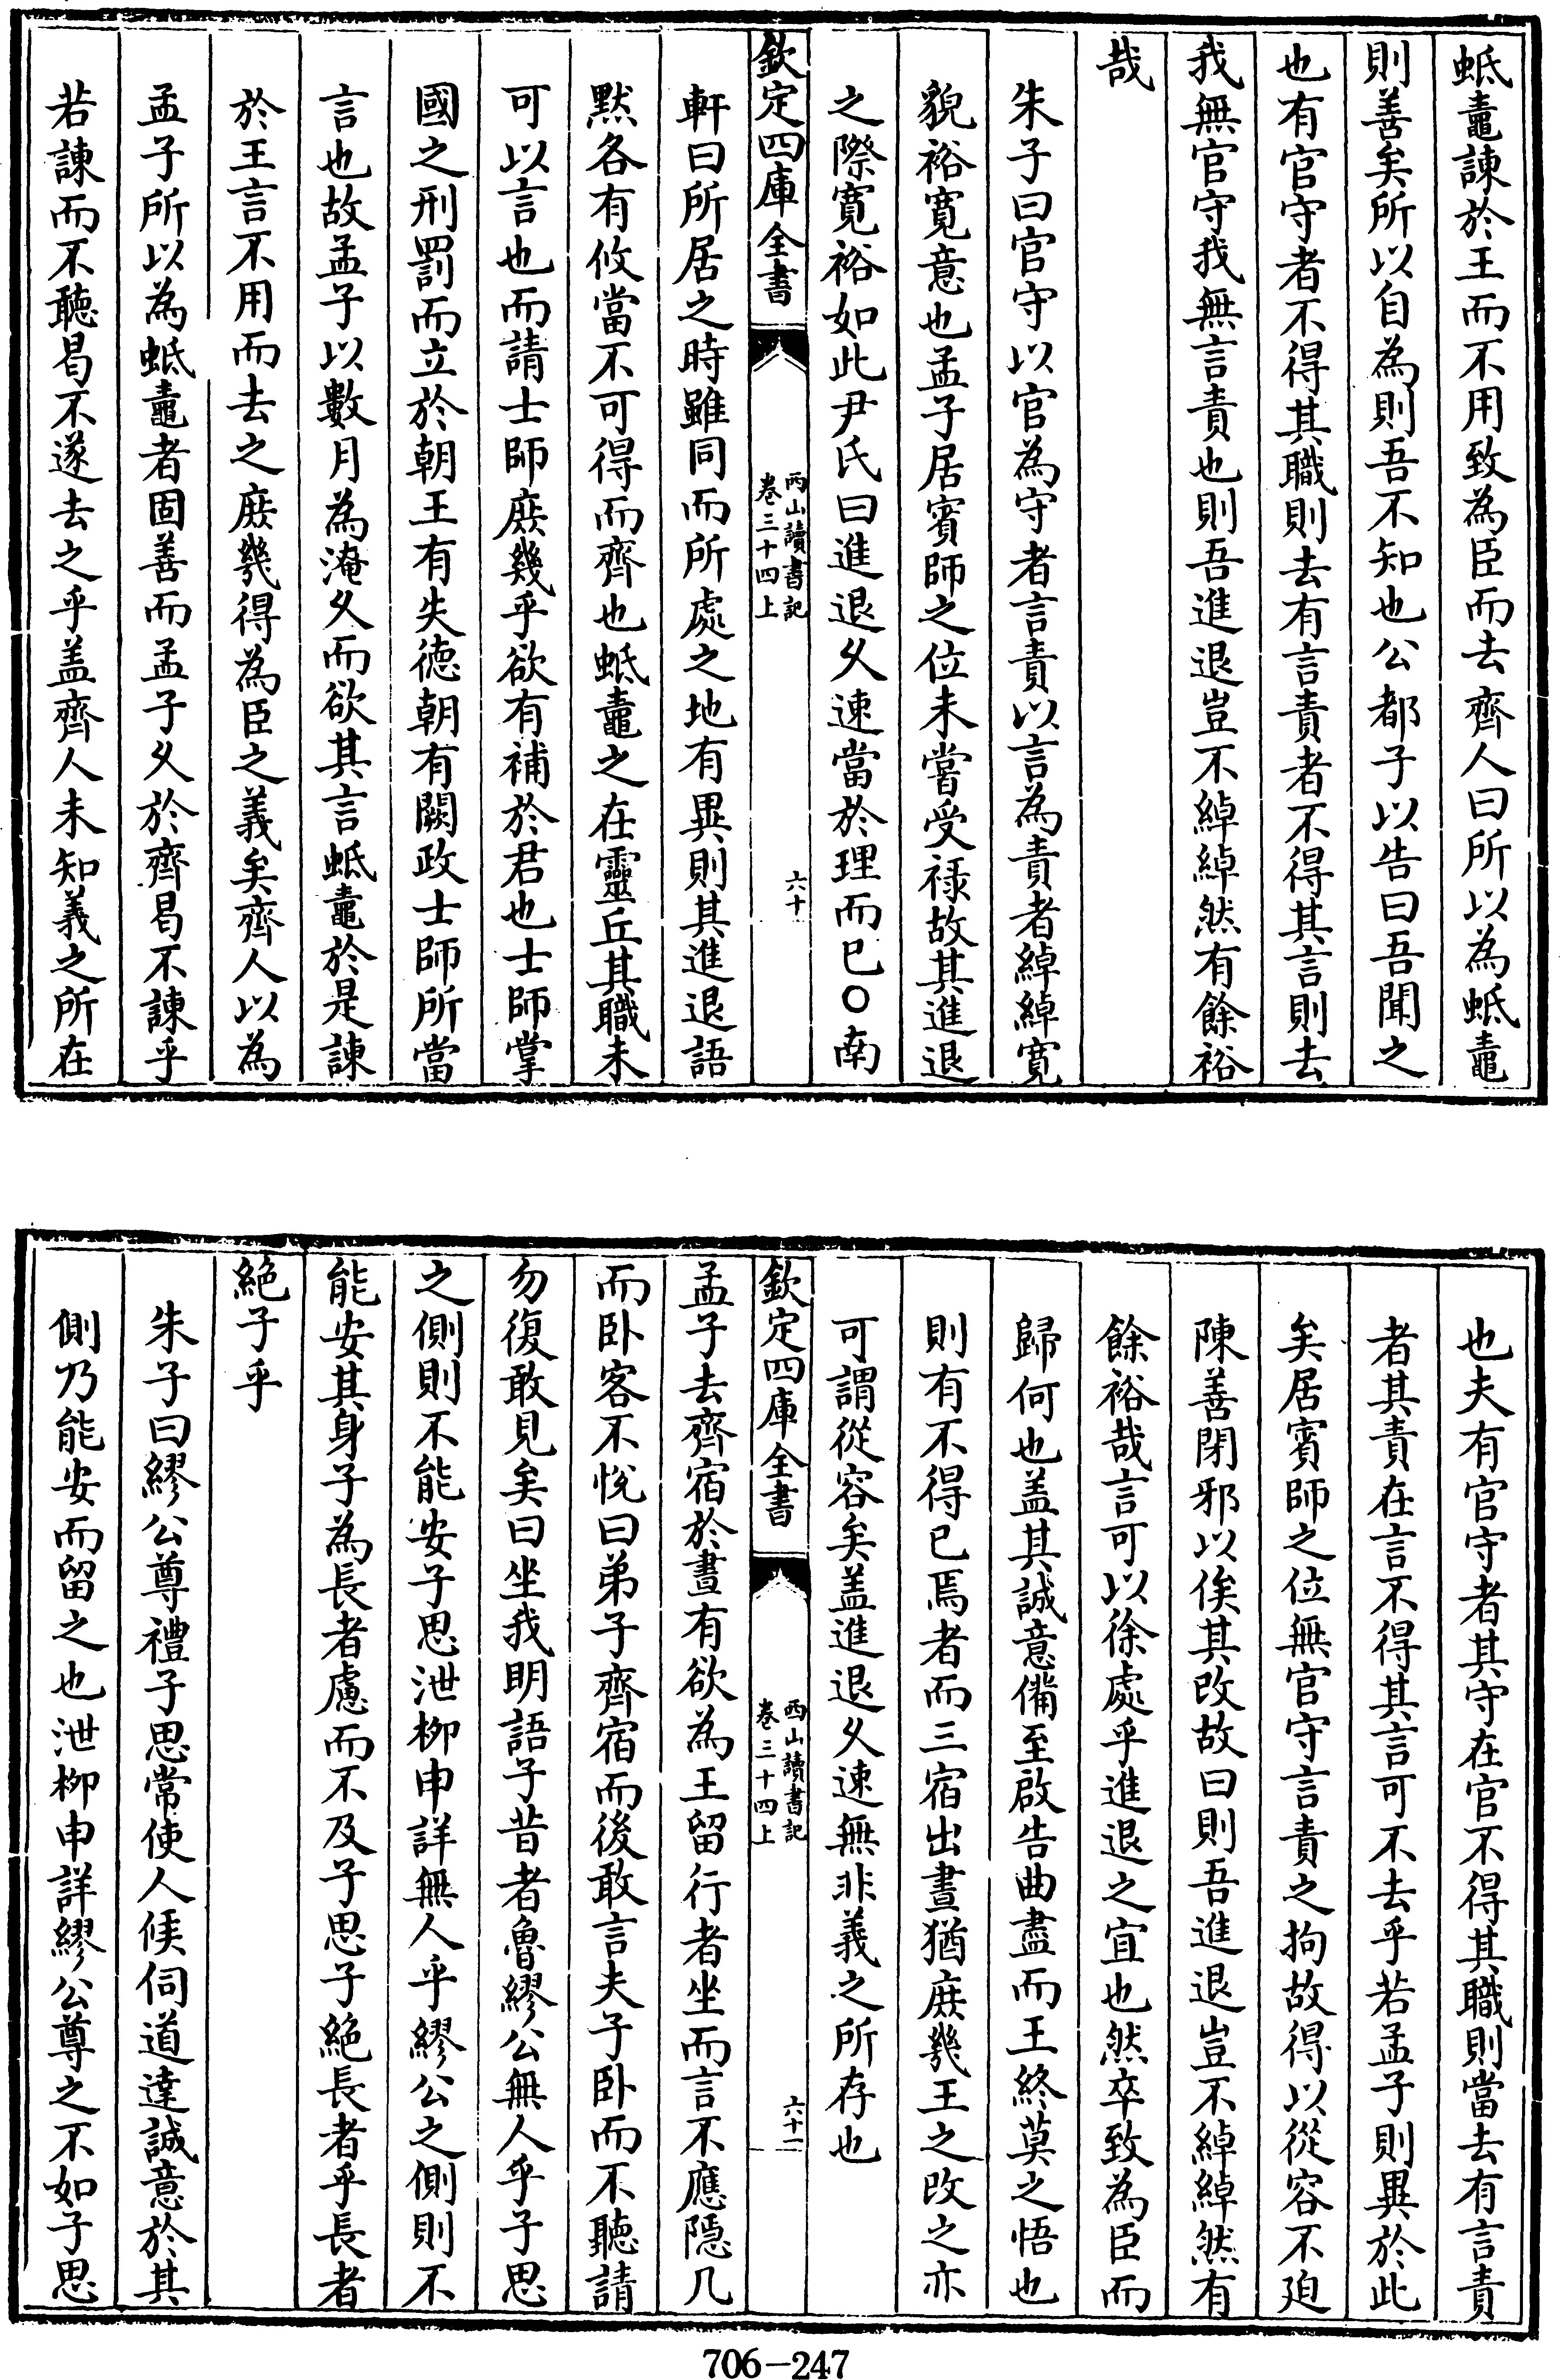 蚳鼃諫於王而不用致為臣而去齊人曰所以為蚳鼃
則善矣所以自為則吾不知也公都子以告曰吾聞之
也有官守者不得其職則去有言責者不得其言則去
我無官守我無言責也則吾進退豈不綽綽然有餘裕
哉
朱子曰官守以官為守者言責以言為責者綽綽寛
貌裕寛意也孟子居賓師之位未嘗受禄故其進退
之際寛裕如此尹氏曰進退久速當於理而已○南
欽定四庫全書
西山讀書記
卷三十四上
六十
軒曰所居之時雖同而所處之地有異則其進退語
黙各有攸當不可得而齊也蚳鼃之在靈丘其職未
可以言也而請士師庶幾乎欲有補於君也士師掌
國之刑罰而立於朝王有失徳朝有闕政士師所當
言也故孟子以數月為淹久而欲其言蚳鼃於是諫
於王言不用而去之庶幾得為臣之義矣齊人以為
孟子所以為蚳鼃者固善而孟子久於齊曷不諫乎
若諫而不聽曷不遂去之乎盖齊人未知義之所在
也夫有官守者其守在官不得其職則當去有言責
者其責在言不得其言可不去乎若孟子則異於此
矣居賓師之位無官守言責之拘故得以從容不廹
陳善閉邪以俟其改故曰則吾進退豈不綽綽然有
餘裕哉言可以徐處乎進退之宜也然卒致為臣而
歸何也盖其誠意備至啟告曲盡而王終莫之悟也
則有不得已焉者而三宿出晝猶庶幾王之改之亦
可謂從容矣盖進退久速無非義之所存也
欽定四庫全書
西山讀書記
卷三十四上
六十一
孟子去齊宿於晝有欲為王留行者坐而言不應隠几
而卧客不悅曰弟子齊宿而後敢言夫子卧而不聽請
勿復敢見矣曰坐我明語子昔者魯繆公無人乎子思
之側則不能安子思泄栁申詳無人乎繆公之側則不
能安其身子為長者慮而不及子思子絶長者乎長者
絶子乎
朱子曰繆公尊禮子思常使人候伺道達誠意於其
側乃能安而留之也泄栁申詳繆公尊之不如子思
706-247